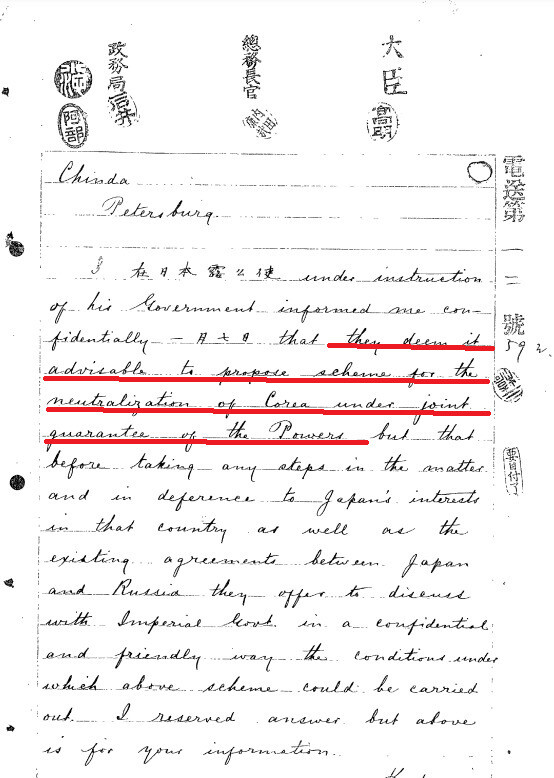 大臣
總務長官
政務局
阿部
電送第一二號
59 2
要目付了
Chinda
Petersburg.
在日本露公使 under instruction
of his Government informed me con-
fidentially 一月七日 that they deem it
advisable to propose scheme for the
neutralization of Corea under joint
guarantee of the Powers but that
before taking any steps in the matter
and in deference to Japan's interests
in that country as well as the
existing agreements between Japan
and Russia they offer to discuss
with Imperial Govt. in a confidential
and friendly way the conditions under
which above scheme could be carried
out. I reserved answer but above
is for your information.